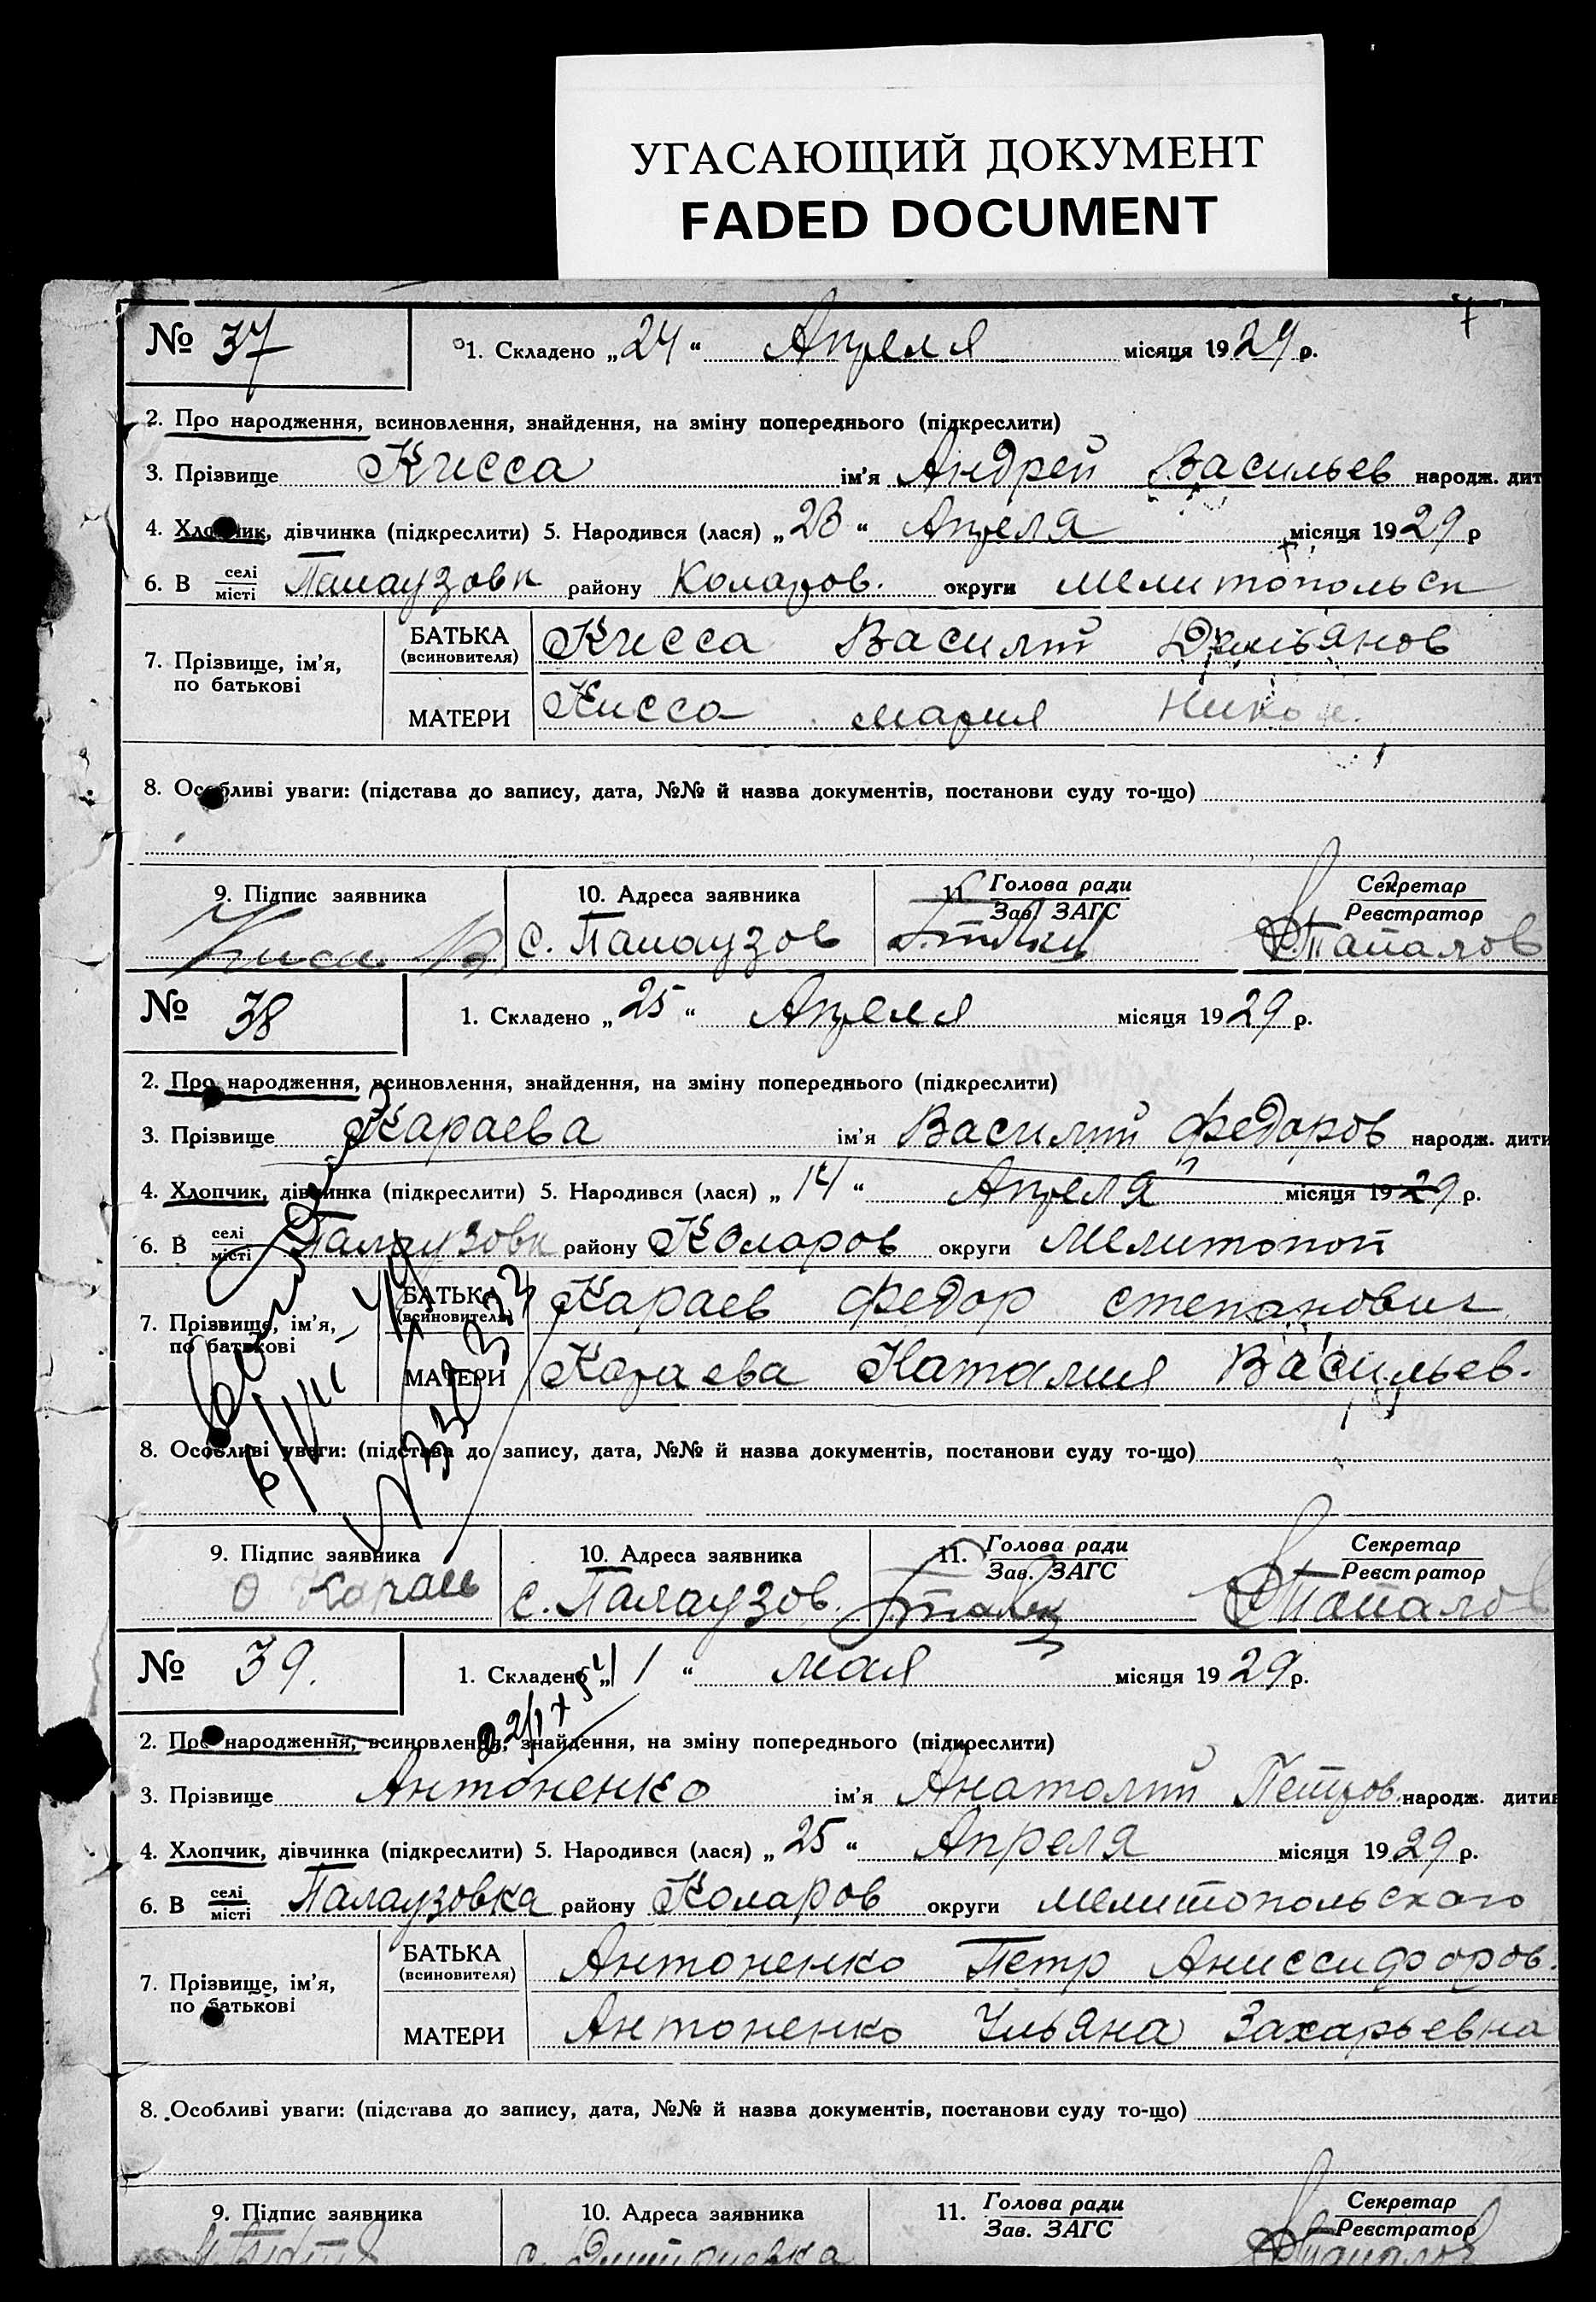 УГАСАЮЩИЙ ДОКУМЕНТ
FADED DOCUMENT
7
№ 37
1. Складено „24“ Апреля місяця 1929 р.
2. Про народження, всиновлення, знайдення, на зміну попереднього (підкреслити)
3. Прізвище Кисса ім'я Андрей Васильев народж. дит
4. Хлопчик, дівчинка (підкреслити) 5. Народився (лася) „23“ Апреля місяця 1929 р
6. В селі місті Палаузовк району Коларов. округи Мелитопольск
7. Прізвище, ім'я, по батькові
БАТЬКА (всиновителя) Кисса Василий Демьянов
МАТЕРИ Кисса Мария Никол.
8. Особливі уваги: (підстава до запису, дата, №№ й назва документів, постанови суду то-що)
9. Підпис заявника 10. Адреса заявника 11. Голова ради Зав. ЗАГС Секретар Реєстратор
с. Палаузов Тапалов
№ 38
1. Складено „25“ Апреля місяця 1929 р.
2. Про народження, всиновлення, знайдення, на зміну попереднього (підкреслити)
3. Прізвище Караева ім'я Василий Федоров народж. дити
4. Хлопчик, дівчинка (підкреслити) 5. Народився (лася) „14“ Апреля місяця 1929 р.
6. В селі місті Палаузовк району Коларов округи Мелитопол
7. Прізвище, ім'я, по батькові
БАТЬКА (всиновителя) Караев Федор Степанович
МАТЕРИ Караева Наталия Васильев.
8. Особливі уваги: (підстава до запису, дата, №№ й назва документів, постанови суду то-що)
9. Підпис заявника 10. Адреса заявника 11. Голова ради Зав. ЗАГС Секретар Реєстратор
Караев с. Палаузов. Тапалов
№ 39.
1. Складено „1“ мая місяця 1929 р.
2. Про народження, всиновлення, знайдення, на зміну попереднього (підкреслити)
3. Прізвище Антоненко ім'я Анатолий Петров народж. дитин
4. Хлопчик, дівчинка (підкреслити) 5. Народився (лася) „25“ Апреля місяця 1929 р.
6. В селі місті Палаузовка району Коларов округи Мелитопольского
7. Прізвище, ім'я, по батькові
БАТЬКА (всиновителя) Антоненко Петр Аниссифоров.
МАТЕРИ Антоненко Ульяна Захарьевна
8. Особливі уваги: (підстава до запису, дата, №№ й назва документів, постанови суду то-що)
9. Підпис заявника 10. Адреса заявника 11. Голова ради Зав. ЗАГС Секретар Реєстратор
Тапалов